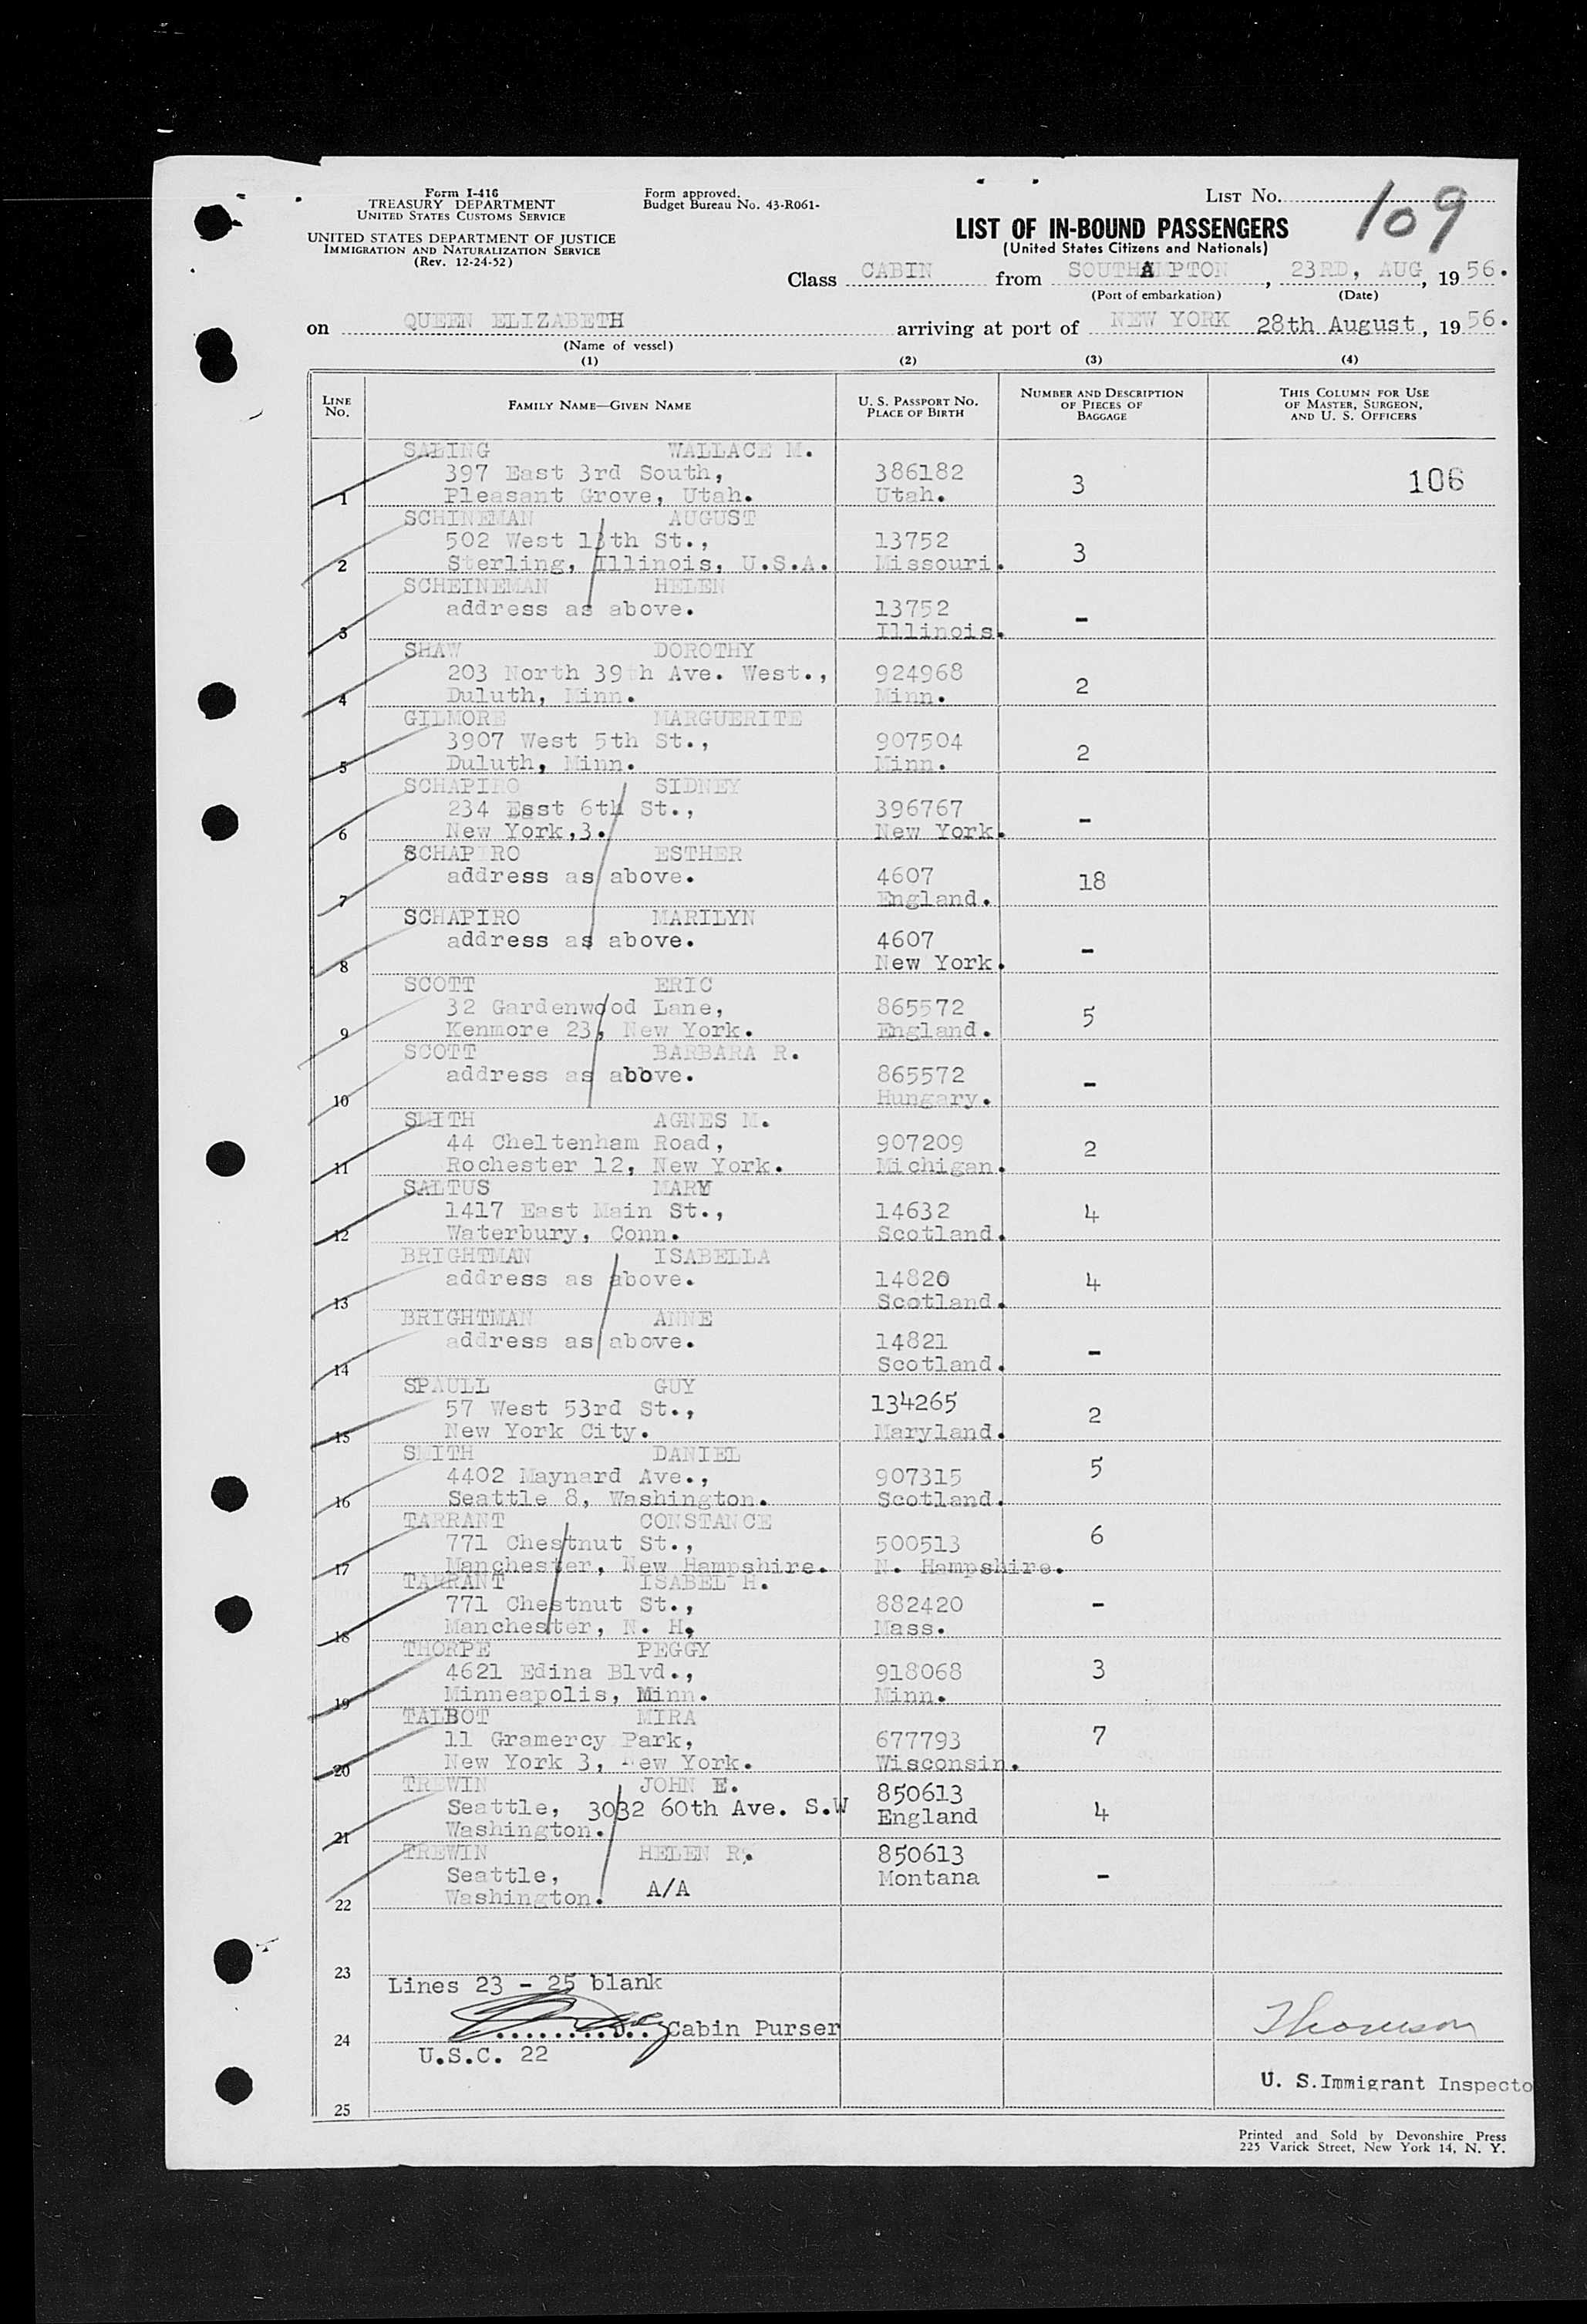 Form I-416
TREASURY DEPARTMENT
UNITED STATES CUSTOMS SERVICE
UNITED STATES DEPARTMENT OF JUSTICE
IMMIGRATION AND NATURALIZATION SERVICE
(Rev. 12-24-52)
Form approved.
Budget Bureau No. 43-R061-
LIST NO. 109
LIST OF IN-BOUND PASSENGERS
(United States Citizens and Nationals)
Class CABIN from SOUTHAMPTON, 23RD, AUG, 1956.
(Port of embarkation) (Date)
on QUEEN ELIZABETH arriving at port of NEW YORK 28th August, 1956.
(Name of vessel)
(1) (2) (3) (4)
LINE NO. FAMILY NAME—GIVEN NAME U. S. PASSPORT NO. PLACE OF BIRTH NUMBER AND DESCRIPTION OF PIECES OF BAGGAGE THIS COLUMN FOR USE OF MASTER, SURGEON, AND U. S. OFFICERS
SABING WALLACE M.
397 East 3rd South, 386182
1 Pleasant Grove, Utah. Utah. 3 106
SCHINEMAN AUGUST
502 West 13th St., 13752
2 Sterling, Illinois, U.S.A. Missouri. 3
SCHEINEMAN HELEN
address as above. 13752 -
3 Illinois.
SHAW DOROTHY
203 North 39th Ave. West., 924968
4 Duluth, Minn. Minn. 2
GILMORE MARGUERITE
3907 West 5th St., 907504
5 Duluth, Minn. Minn. 2
SCHAPIRO SIDNEY
234 Esst 6th St., 396767
6 New York,3. New York. -
SCHAPIRO ESTHER
address as above. 4607 18
7 England.
SCHAPIRO MARILYN
address as above. 4607 -
8 New York.
SCOTT ERIC
32 Gardenwood Lane, 865572 5
9 Kenmore 23, New York. England.
SCOTT BARBARA R.
address as abbve. 865572 -
10 Hungary.
SMITH AGNES M.
44 Cheltenham Road, 907209 2
11 Rochester 12, New York. Michigan.
SALTUS MARY
1417 East Main St., 14632 4
12 Waterbury, Conn. Scotland.
BRIGHTMAN ISABELLA
address as above. 14820 4
13 Scotland.
BRIGHTMAN ANNE
address as above. 14821 -
14 Scotland.
SPAULL GUY
57 West 53rd St., 134265 2
15 New York City. Maryland.
SMITH DANIEL
4402 Maynard Ave., 907315 5
16 Seattle 8, Washington. Scotland.
TARRANT CONSTANCE
771 Chestnut St., 500513 6
17 Manchester, New Hampshire. N. Hampshire.
TARRANT ISABEL H.
771 Chestnut St., 882420 -
18 Manchester, N. H, Mass.
THORPE PEGGY
4621 Edina Blvd., 918068 3
19 Minneapolis, Minn. Minn.
TALBOT MIRA
11 Gramercy Park, 677793 7
20 New York 3, New York. Wisconsin.
TREWIN JOHN E. 850613
Seattle, 3032 60th Ave. S.W England 4
21 Washington.
TREWIN HELEN R. 850613
Seattle, Montana -
22 Washington. A/A
23
Lines 23 - 25 blank
Cabin Purser Thomson
24
U.S.C. 22
U. S.Immigrant Inspecto
25
Printed and Sold by Devonshire Press
225 Varick Street, New York 14, N. Y.